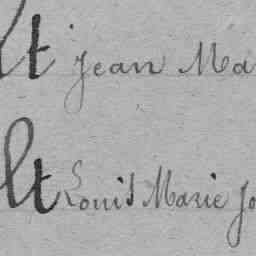 t Jean Ma
lt Louis Marie Jo